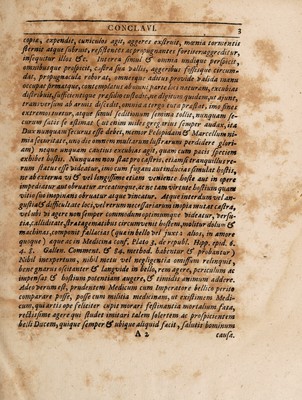 CONCLAVI. 3
copiæ, expendit, cuniculos agit, aggeres exstruit, mœnia tormentis
sternit atque subruit, resistentes ac propugnantes fortiter aggreditur,
insequitur illos &c. Interea simul & omnia undique perspicit,
omnibusque prospicit, castra sua vallis, aggeribus fossisque circum-
dat, propugnacula roborat, omnesque aditus provide valida manu
occupat præmatque, contemplatus ab omni parte loci naturam, excubias
distribuit, suffecientique præsidio custodit, ne destituti quidem, ut ajunt,
transversum ab armis discedit, omnia a tergo tuta præstat, imo sines
extremos tuetur, atque simul seditionum semina tollit, nunquam se-
curum satis se existimat (ut enim miles gregarius semper audax, ita
Dux nunquam securus esse debet, memor Pelopidam & Marcellum ni-
mia securitate, uno die omnem multarum lustrarum perdidere glori-
am) neque unquam cautius excubias agit, quam cum pacis speciem
exhibet hostis. Nunquam non stat pro castris, etiamsi tranquillus re-
rum status esse videatur, imo cum fugam autumices simulat hostis,
ut ab externo vi & vel longissime etiam veniente hoste aut in opere
impeditur aut obruatur arceaturque, at ne tam virtute hostium quam
vitio suo improvis obruatur atque vincatur. Atque interdum vel an-
gustia & difficultate loci, vel rerum necessariarum inopia motus, castra,
vel ubi vi agere non semper commodum optimumque videatur, versu-
tia, calliditate, stratagematibus circumvenit hostem, molitur dolum &
machinas, componit fallacias (qua in bello vel sunt: adeo, in amore
quoque) æque ac in Medicina conf. Plato 3. de republ. Hipp. epid. 6.
2. §. Gallen. Comment. & 24. method. habentur & probantur)
Nihil inexpertum, nihil metu vel negligentia omissum relinquit,
bene gnarus oscitantes & languide in bello, rem agere, periculum ac
impensas & hostium potentiam augere, & similis animum addere.
Adeo verum est, prudentem Medicum cum Imperatore bellico perito
comparare posse, posse cum militia medicinam, ut existimem Medi-
cum, qui artis ope feliciter cupit morari festinantia mortalium fata,
rectissime agere qui studet imitari talem solertem ac prospicientem
belli Ducem, quique semper & ubique aliquid facit, salutis hominum
A 2 causa.